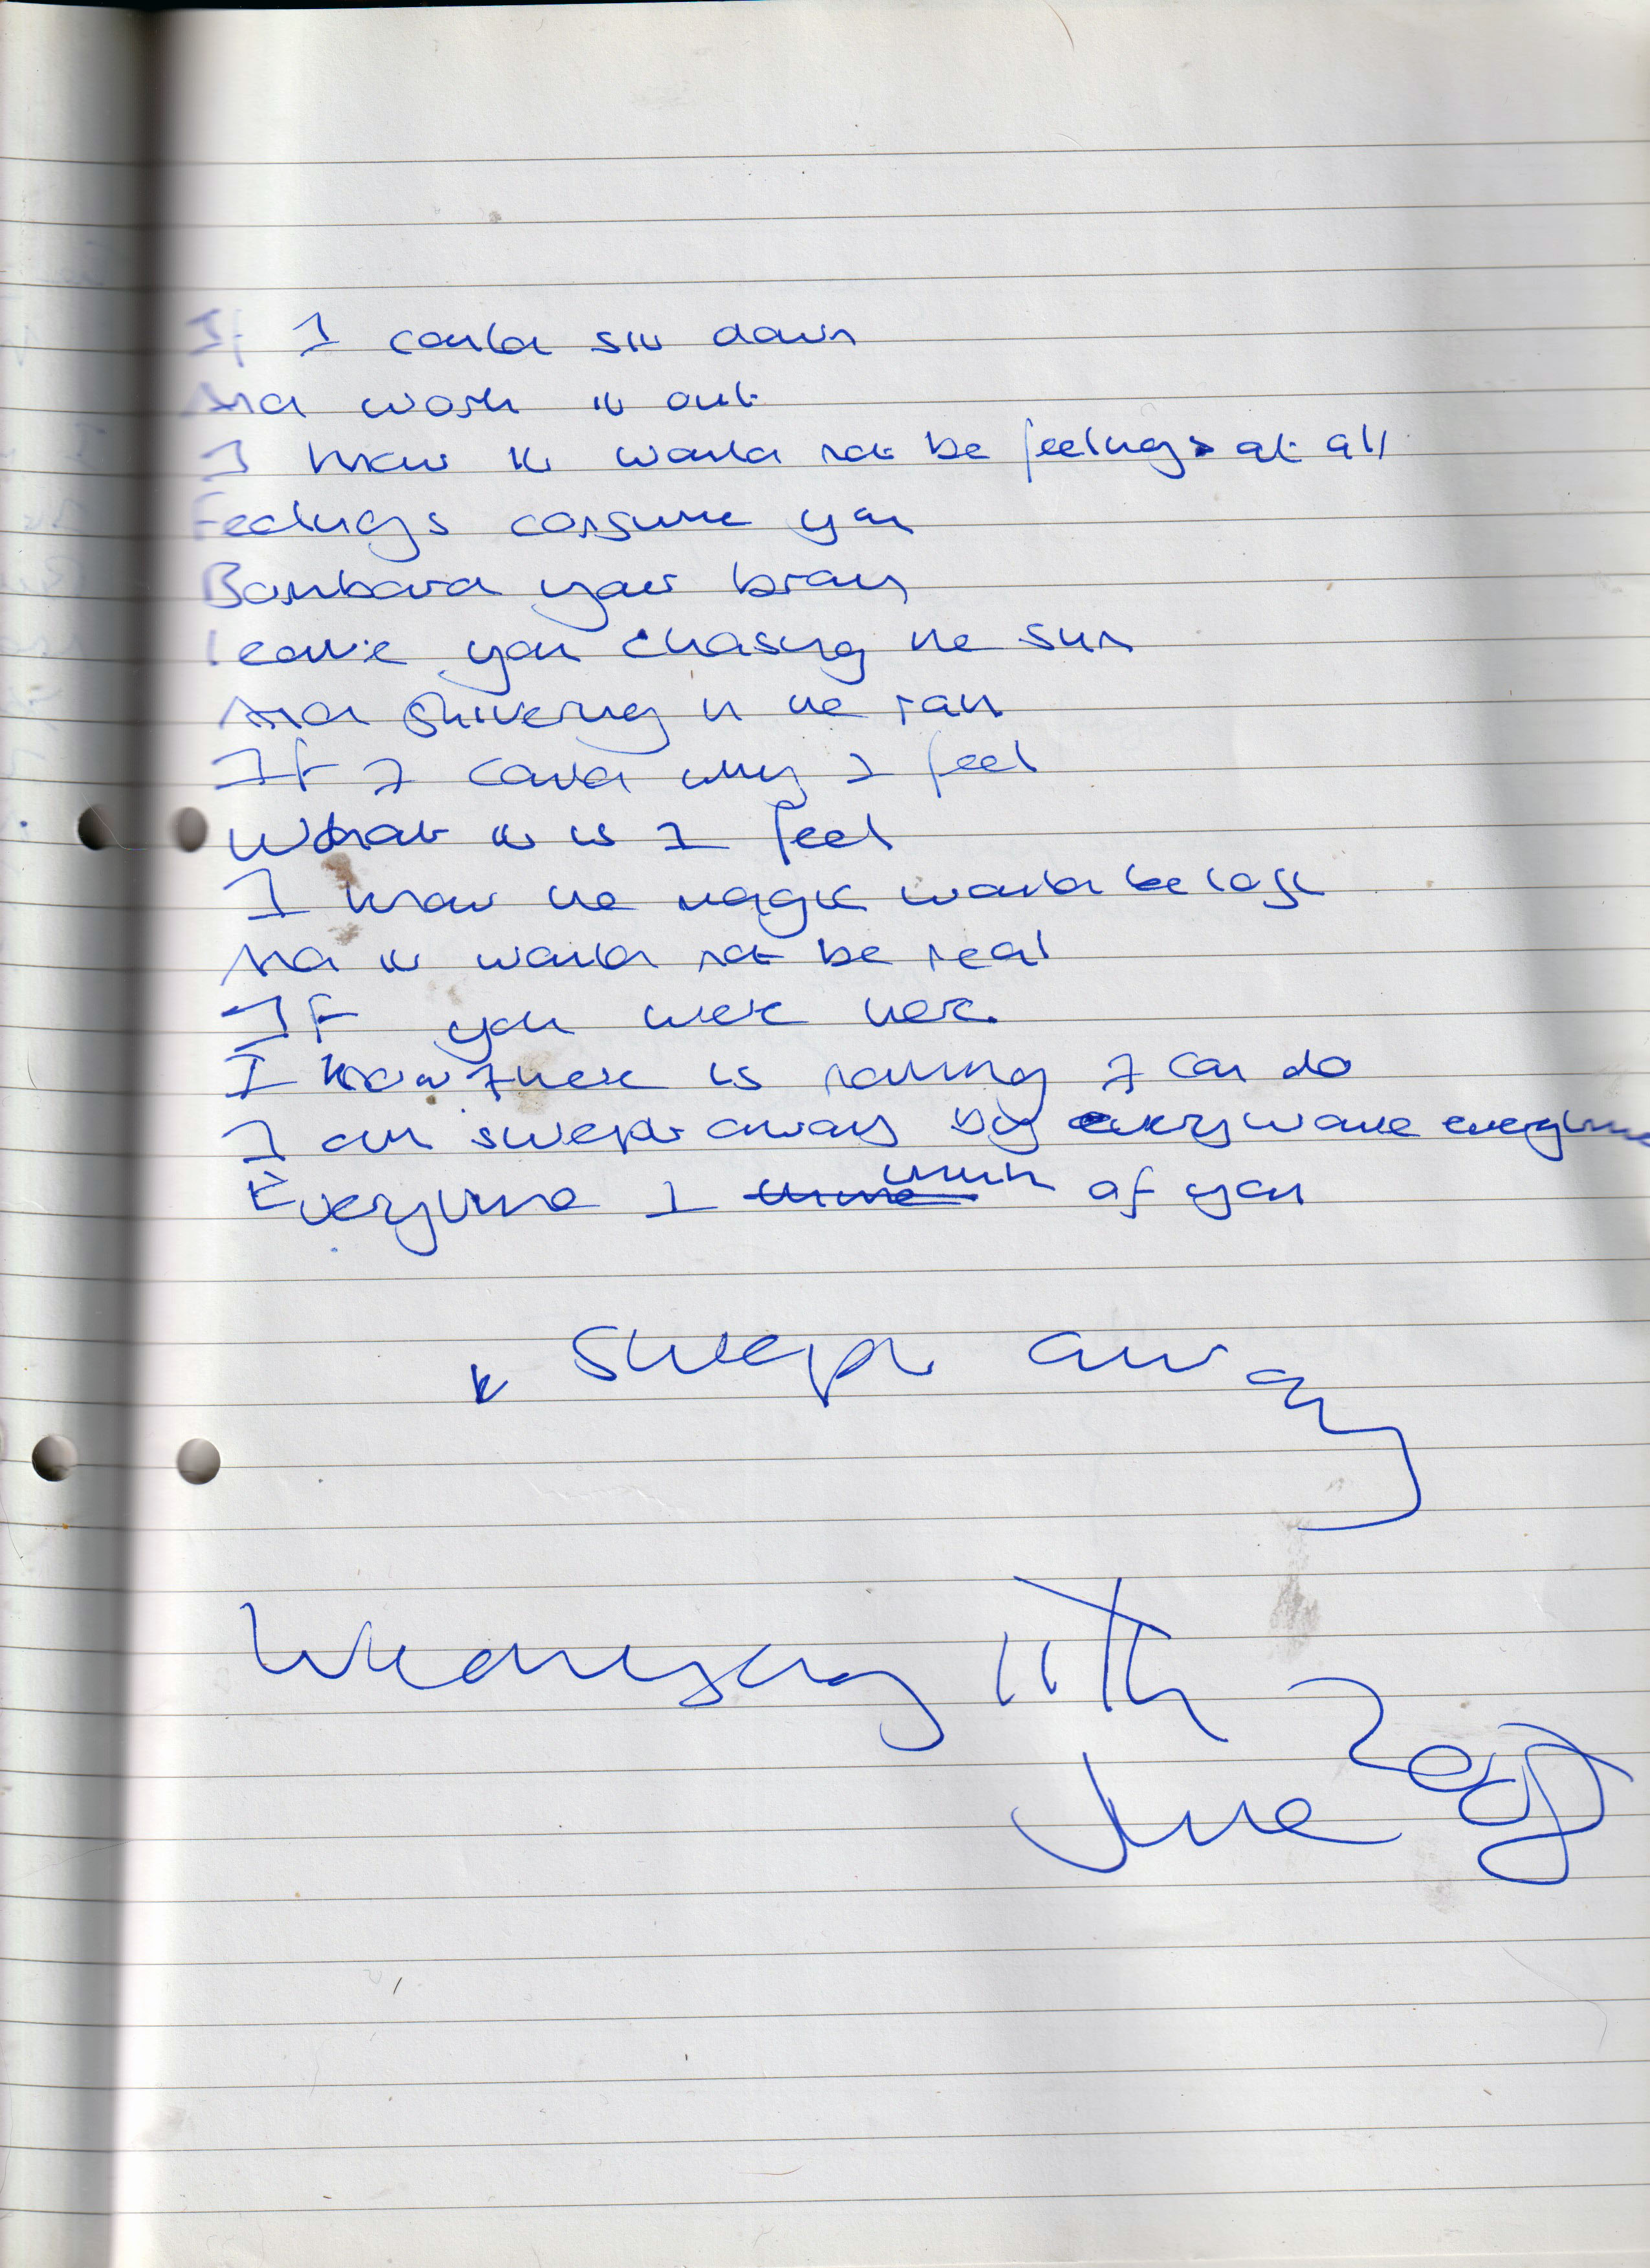 If I could sit down
And work it out
I know it would not be feelings at all
Feelings consume you
Bombard your brain
leave you chasing the sun
And Shivering in the rain
If I could why I feel
What it is I feel
I know the magic would be lost
And it would not be real
If you were here.
I know there is nothing I can do
I am swept away by every wave everytime
Everytime I think of you
Swept away
Wednesday 11th
June